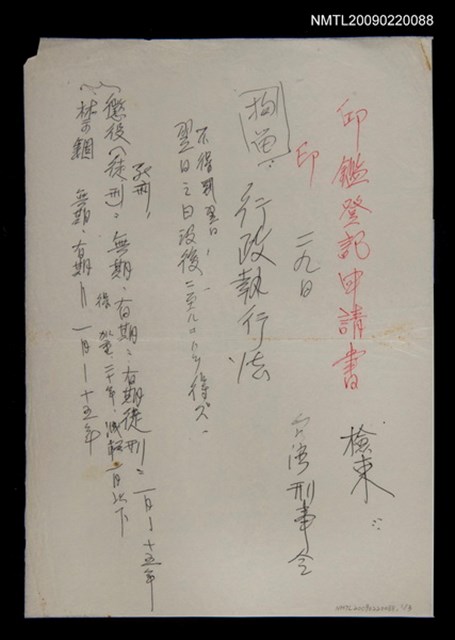 NMTL20090220088
印鑑登記申請書 検束
印 二九日 台湾刑事令
拘留 行政執行法
不得到翌日、
翌日之日没後
死刑、
懲役(徒刑) 無期、有期、有期徒刑 一月—十五年
二十年 減輕 一月以下
禁錮 無期、有期 一月—十五年
NMTL20090220088, 1/3